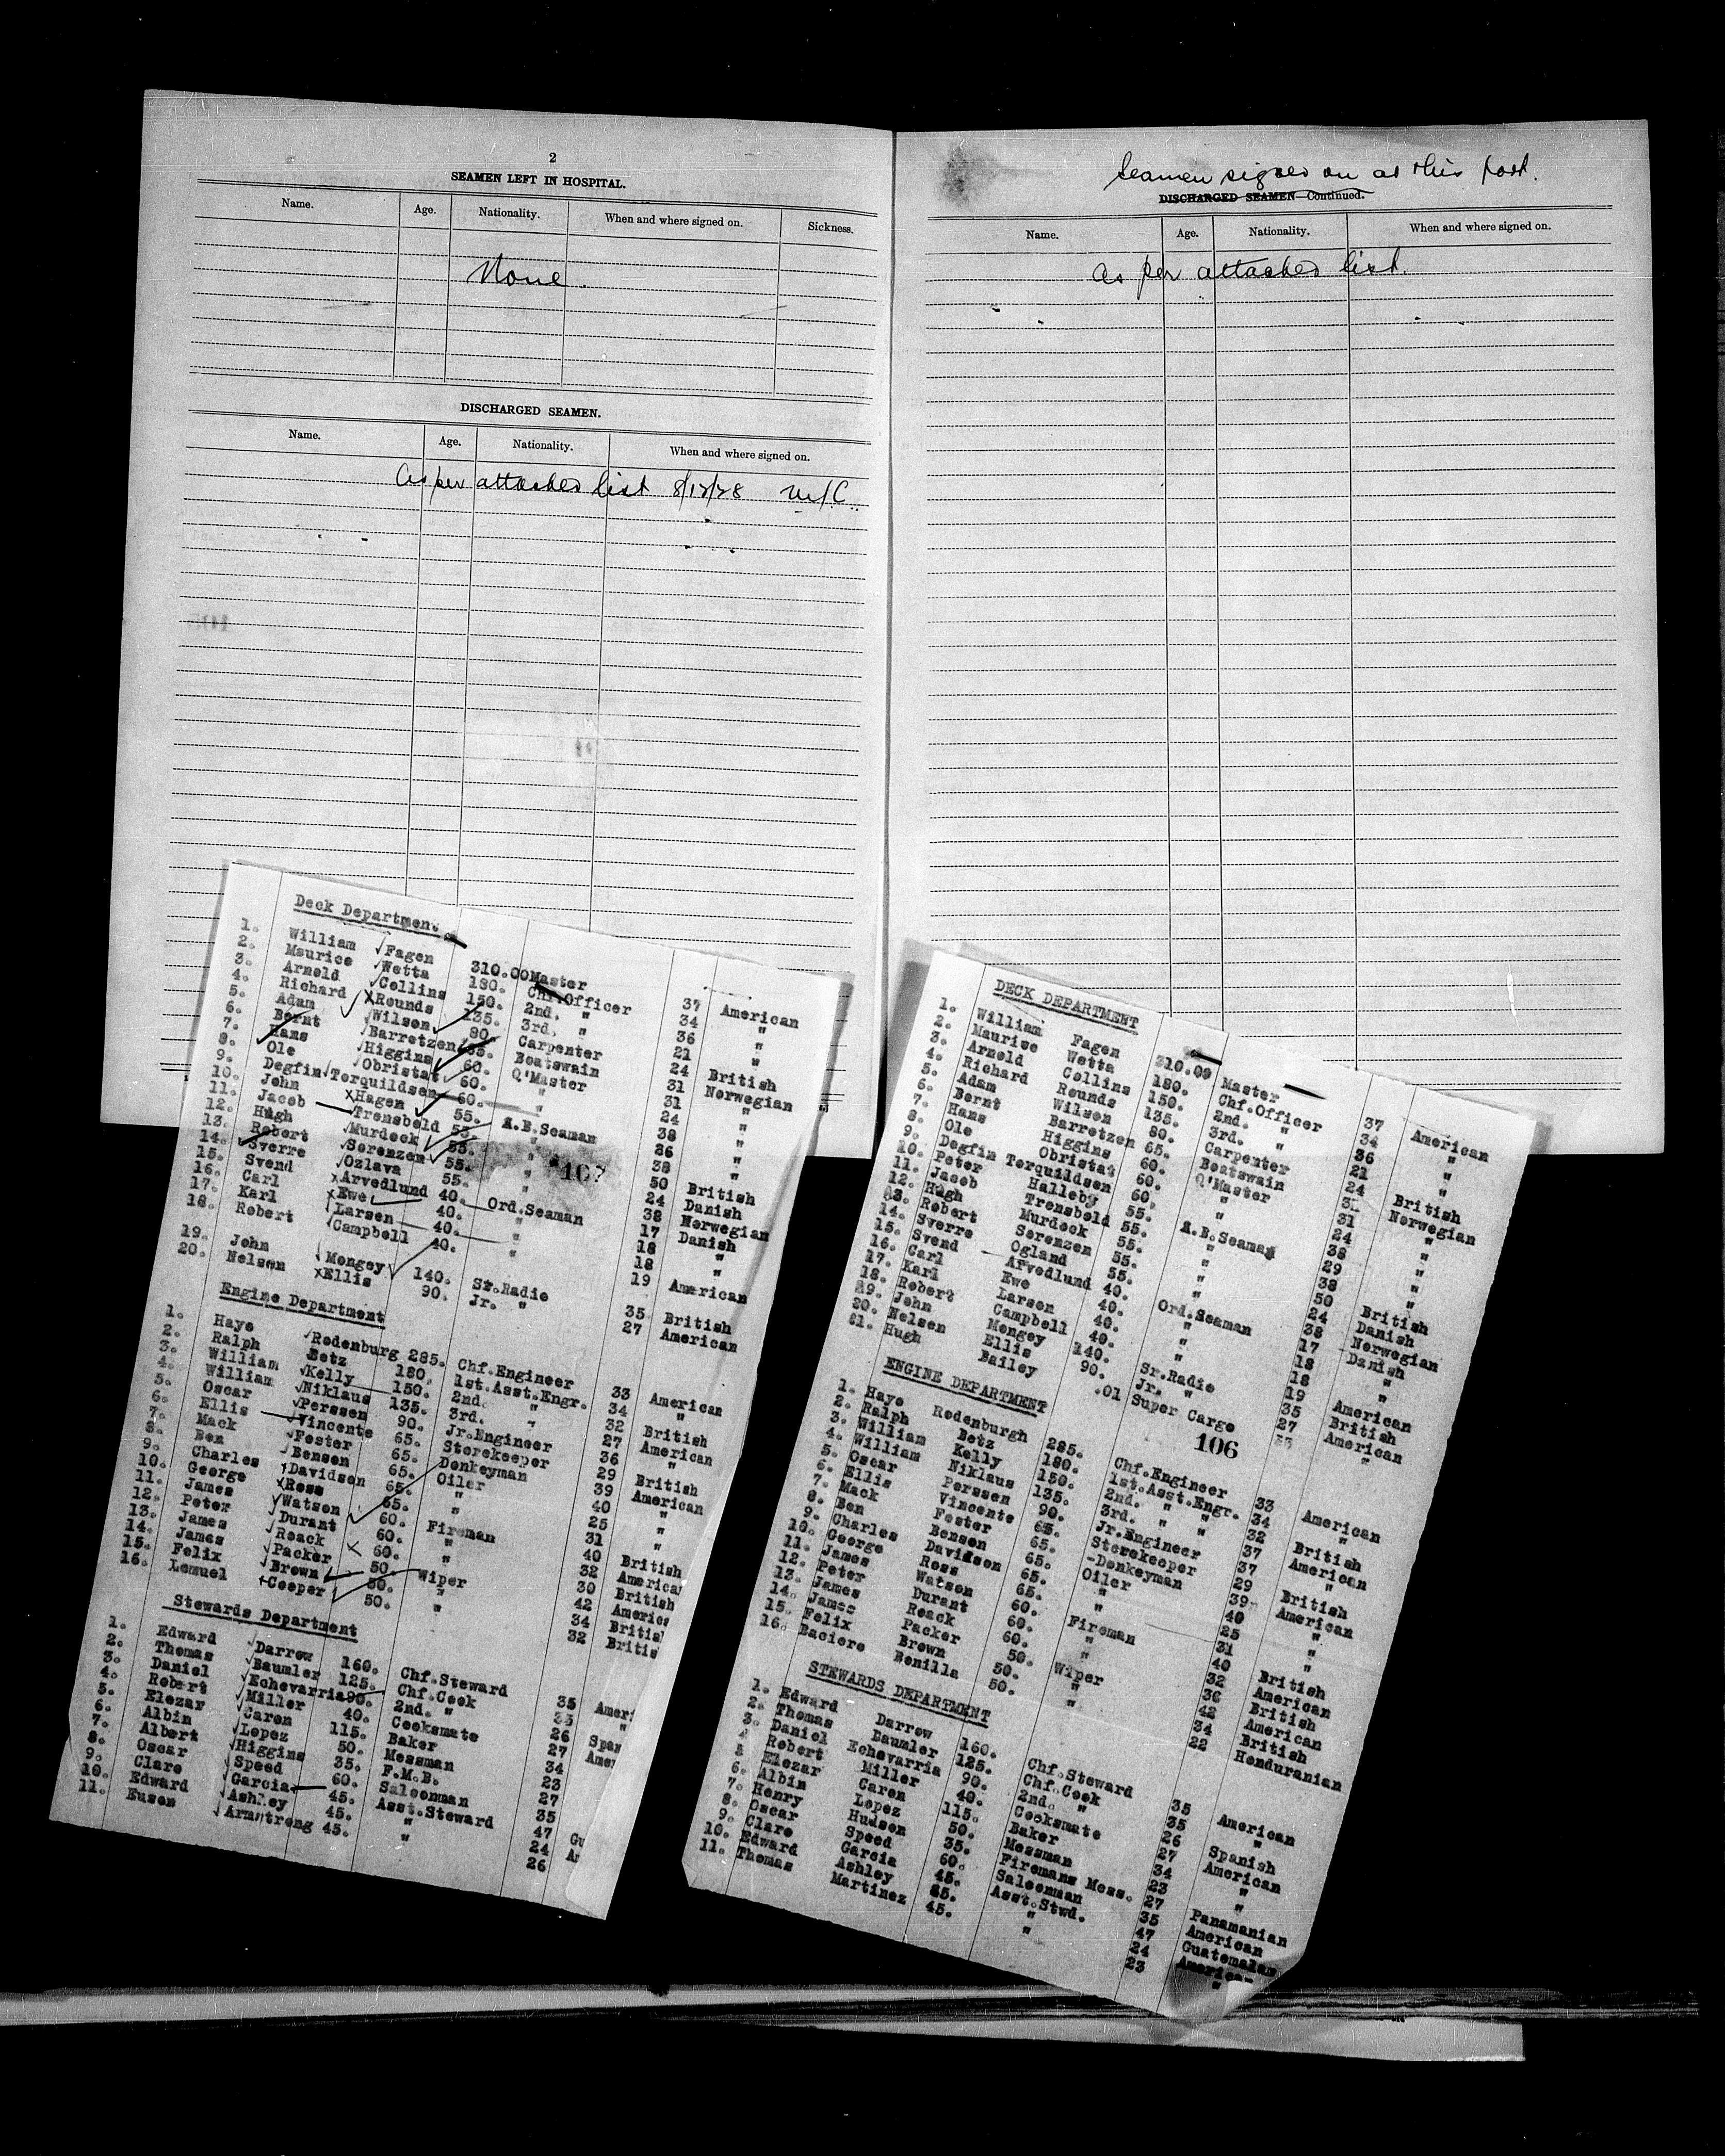 2
SEAMEN LEFT IN HOSPITAL.
Name. Age. Nationality. When and where signed on. Sickness.
None.
DISCHARGED SEAMEN.
Name. Age. Nationality. When and where signed on.
As per attached list 8/12/28
Seamen signed on at this port.
DISCHARGED SEAMEN—Continued.
Name. Age. Nationality. When and where signed on.
As per attached list.
Deck Department
1. William Fagen 310.00 Master 37 American
2. Maurice Wetta 180. Chf.Officer 34 "
3. Arnold Collins 150. 2nd. " 36 "
4. Richard Rounds 135. 3rd. " 21 "
5. Adam Wilson 80. Carpenter 24 British
6. Bernt Barretzen 65. Boatswain 31 Norwegian
7. Hans Higgins 60. Q'Master 31 "
8. Ole Obristat 60. " 24 "
9. Degfin Torquildsen 60. " 38 "
10. John Hagen 55. A.B.Seaman 26 "
11. Jacob Trensbeld 55. " 38 "
12. Hugh Murdock 55. " 50 British
13. Robert Sorenzen 55. " 24 Danish
14. Sverre Ozlava 55. " 38 Norwegian
15. Svend Arvedlund 40. Ord.Seaman 17 Danish
16. Carl Ewe 40. " 18 "
17. Karl Larsen 40. " 18 "
18. Robert Campbell 40. " 19 American
19. John Mongey 140. Sr.Radio 35 British
20. Nelsen Ellis 90. Jr. " 27 American
107
Engine Department
1. Haye Redenburg 285. Chf.Engineer 33 American
2. Ralph Betz 180. 1st.Asst.Engr. 34 "
3. William Kelly 150. 2nd. " 32 British
4. William Niklaus 135. 3rd. " 27 American
5. Oscar Perssen 90. Jr.Engineer 36 "
6. Ellis Vincente 65. Storekeeper 29 British
7. Mack Foster 65. Donkeyman 39 American
8. Ben Bensen 65. Oiler 40 "
9. Charles Davidson 65. " 25 "
10. George Ross 65. " 31 "
11. James Watson 60. Fireman 40 British
12. Peter Durant 60. " 32 American
13. James Roack 60. " 30 British
14. James Packer 50. Wiper 42 America
15. Felix Brown 50. " 34 British
16. Lemuel Cooper 50. " 32 Britis
Stewards Department
1. Edward Darrow 160. Chf.Steward 35 Ameri
2. Thomas Baumler 125. Chf.Cook 35 "
3. Daniel Echevarria 90. 2nd. " 26 Span
4. Robert Miller 40. Cooksmate 27 Amer
5. Elezar Caron 115. Baker 34
6. Albin Lopez 50. Messman 23
7. Albert Higgins 35. F.M.B. 27
8. Oscar Speed 60. Saloonman 35
9. Clare Garcia 45. Asst.Steward 47 Gu
10. Edward Ashley 45. " 24 A
11. Eusen Armstrong 45. " 26
DECK DEPARTMENT
1. William Fagen 310.00 Master 37 American
2. Maurice Wetta 180. Chf.Officer 34 "
3. Arnold Collins 150. 2nd. " 36 "
4. Richard Rounds 135. 3rd. " 21 "
5. Adam Wilson 80. Carpenter 24 British
6. Bernt Barretzen 65. Boatswain 31 Norwegian
7. Hans Higgins 60. Q'Master 31 "
8. Ole Obristat 60. " 24 "
9. Degfin Torquildsen 60. " 38 "
10. Peter Halleby 55. A.B.Seaman 29 "
11. Jacob Trensbeld 55. " 38 "
12. Hugh Murdock 55. " 50 British
13. Robert Sorenzen 55. " 24 Danish
14. Sverre Ogland 55. " 38 Norwegian
15. Svend Arvedlund 40. Ord.Seaman 17 Danish
16. Carl Ewe 40. " 18 "
17. Karl Larsen 40. " 18 "
18. Robert Campbell 40. " 19 American
19. John Mongey 140. Sr.Radio 35 British
20. Nelsen Ellis 90. Jr. " 27 American
21. Hugh Bailey .01 Super Cargo "
106
ENGINE DEPARTMENT
1. Haye Redenburgh 285. Chf.Engineer 33 American
2. Ralph Betz 180. 1st.Asst.Engr. 34 "
3. William Kelly 150. 2nd. " " 32 British
4. William Niklaus 135. 3rd. " " 37 American
5. Oscar Perssen 90. Jr.Engineer 37 "
6. Ellis Vincente 65. Storekeeper 29 British
7. Mack Foster 65. Donkeyman 39 American
8. Ben Bensen 65. Oiler 40 "
9. Charles Davidson 65. " 25 "
10. George Ross 65. " 31 "
11. James Watson 60. Fireman 40 British
12. Peter Durant 60. " 32 American
13. James Roack 60. " 30 British
14. James Packer 50. Wiper 42 American
15. Felix Brown 50. " 34 British
16. Baciero Bonilla 50. " 22 Honduranian
STEWARDS DEPARTMENT
1. Edward Darrow 160. Chf.Steward 35 American
2. Thomas Baumler 125. Chf.Cook 35 "
3. Daniel Echevarria 90. 2nd. " 26 Spanish
4 Robert Miller 40. Cooksmate 27 American
5 Elezar Caron 115. Baker 34 "
6. Albin Lopez 50. Messman 23 "
7. Henry Hudson 35. Firemans Mess. 27 Panamanian
8. Oscar Speed 60. Saloonman 35 American
9. Clare Garcia 45. Asst.Stwd. 47 Guatemalan
10. Edward Ashley 45. " 24 American
11. Thomas Martinez 45. " 23 "